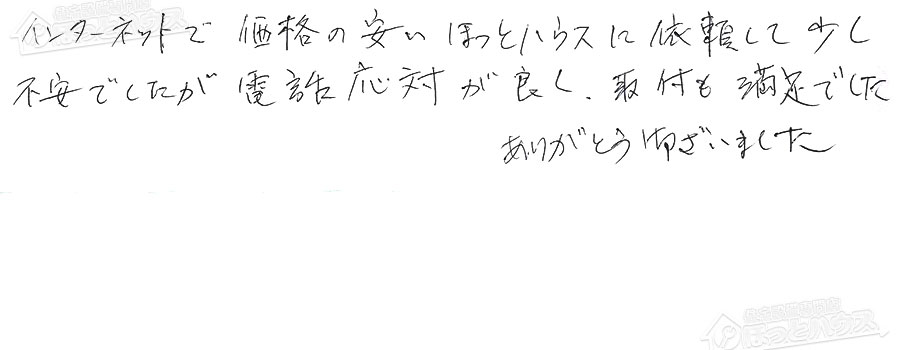 インターネットで 価格の安い ほっとハウスに 依頼して少し
不安でしたが 電話応対が良く、取付も満足でした
ありがとうございました
ほっとハウス